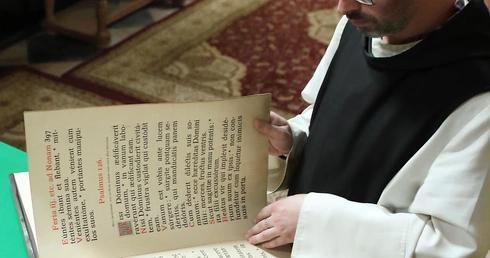 Feria iii. etc. ad Nonam 397
Euntes ibant et flebant, mit-
tentes semina sua.
Venientes autem venient cum
exsultatione, * portantes manipu-
los suos.
Psalmus 126.
Nisi Dominus ædificaverit
domum, * in vanum labo-
raverunt qui ædificant eam.
Nisi Dominus custodierit civita-
tem, * frustra vigilat qui custodit
eam.
Vanum est vobis ante lucem
surgere: * surgite postquam se-
deritis, qui manducatis panem
doloris.
Cum dederit dilectis suis so-
mnum: * ecce hereditas Domini
filii: merces fructus ventris.
Sicut sagittæ in manu potentis: *
ita filii excussorum.
Beatus vir qui implevit deside-
rium suum ex ipsis: * non con-
fundetur cum loquetur inimicis
suis in porta.